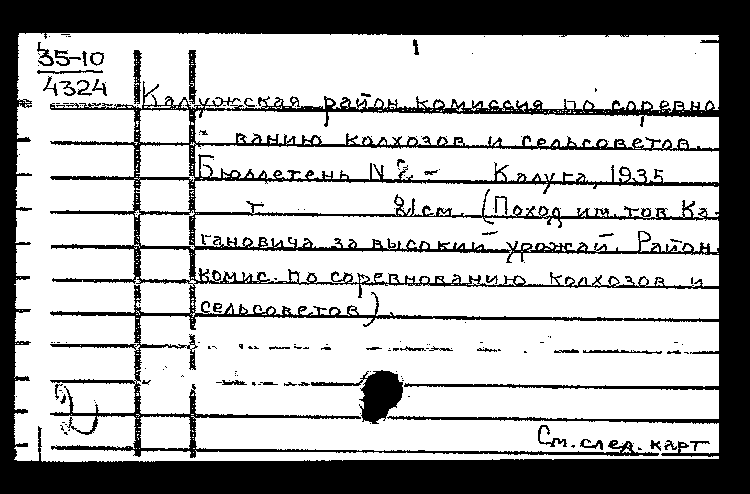 35-10
4324
Калужская район. комиссия по соревно-
ванию колхозов и сельсоветов.
Бюллетень N 2 - Калуга, 1935
т 21 см. (Поход им. тов Ка-
гановича за высокий урожай. Район.
комис. по соревнованию колхозов и
сельсоветов).
2
См. след. карт